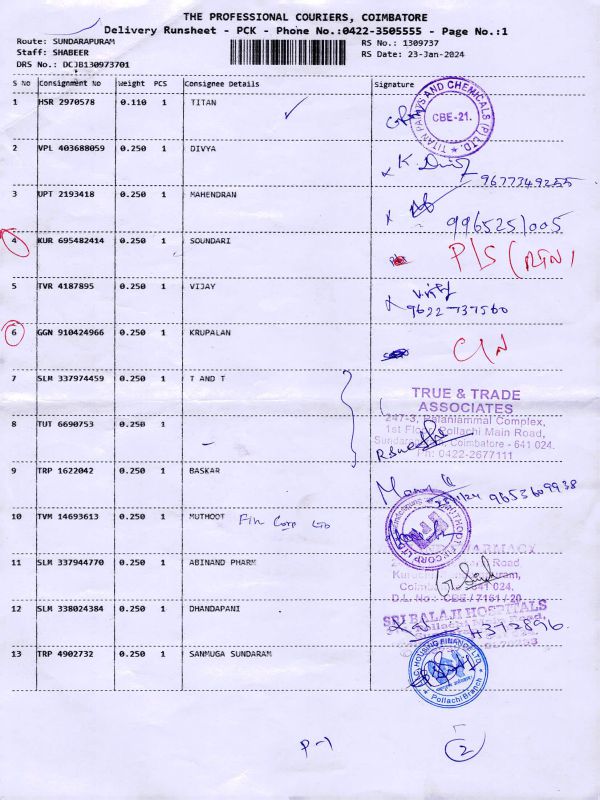 THE PROFESSIONAL COURIERS, COIMBATORE
Delivery Runsheet - PCK - Phone No.:0422-3505555 - Page No.:1
Route: SUNDARAPURAM
Staff: SHABEER
DRS No.: DCJB130973701
RS No.: 1309737
RS Date: 23-Jan-2024
S No Consignment No Weight PCS Consignee Details Signature
1 HSR 2970578 0.110 1 TITAN
TITAN PAINTS AND CHEMICALS (P) LTD.
CBE-21.
2 VPL 403688059 0.250 1 DIVYA
9677349255
3 UPT 2193418 0.250 1 MAHENDRAN
9965251005
4 KUR 695482414 0.250 1 SOUNDARI
P/S (RTN)
5 TVR 4187895 0.250 1 VIJAY
9622737560
6 GGN 910424966 0.250 1 KRUPALAN
C/N
7 SLM 337974459 0.250 1 T AND T
TRUE & TRADE
ASSOCIATES
247-3, Palaniammal Complex,
1st Floor, Pollachi Main Road,
Sundarapuram, Coimbatore - 641 024.
Tel: 0422-2677111
8 TUT 6690753 0.250 1
9 TRP 1622042 0.250 1 BASKAR
9653609938
10 TVM 14693613 0.250 1 MUTHOOT Fin Corp Ltd
MUTHOOT FIN CORP LTD
11 SLM 337944770 0.250 1 ABINAND PHARM
PHARMACY
Road
Coimbatore - 641 024.
D.L.No.: CBE / 7161 / 20
12 SLM 338024384 0.250 1 DHANDAPANI
SRI BALAJI HOSPITALS
13 TRP 4902732 0.250 1 SANMUGA SUNDARAM
HOUSING FINANCE LTD.
Pollachi Branch
P-1
2